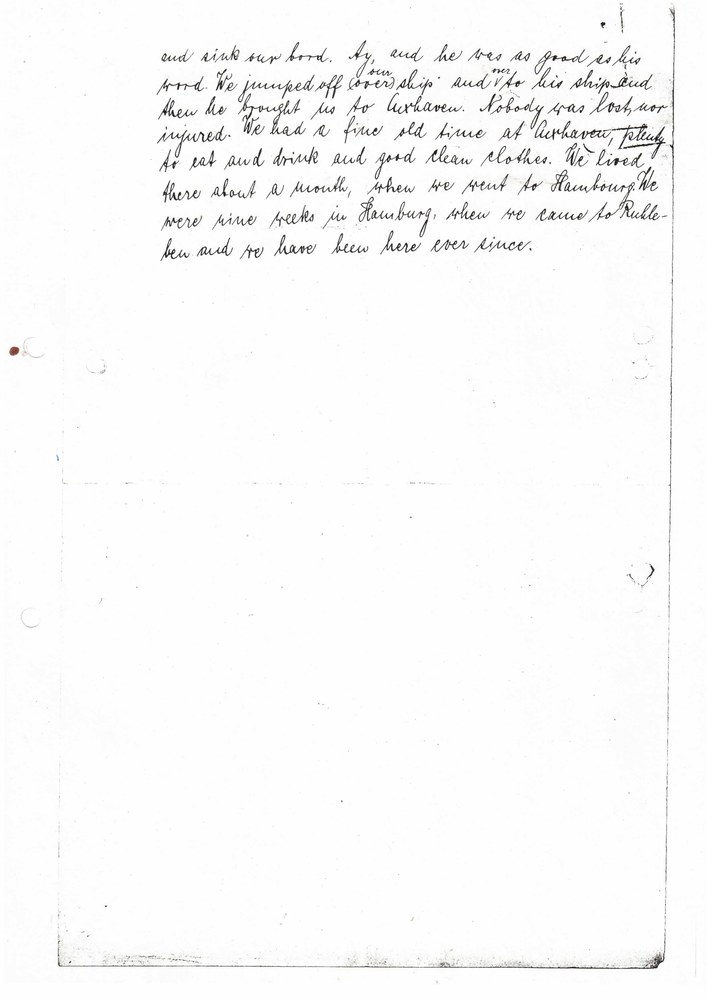 and sink our bord. Ay, and he was as good as his
word. We jumped off (over) our ship and over to his ship and
then he brought us to Cuxhaven. Nobody was lost, nor
injured. We had a fine old time at Cuxhaven, plenty
to eat and drink and good clean clothes. We lived
there about a month, when we went to Hambourg. We
were nine weeks in Hamburg, when we came to Ruhle-
ben and we have been here ever since.